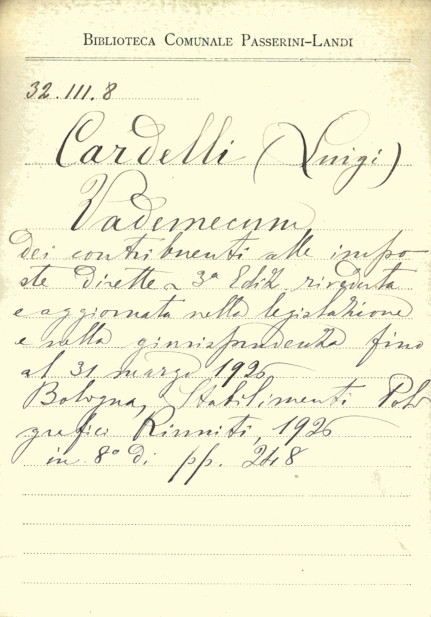 BIBLIOTECA COMUNALE PASSERINI-LANDI
32.III.8
Cardelli (Luigi)
Vademecum
dei contribuenti alle impo-
ste dirette ~ 3ª Ediz. riveduta
e aggiornata nella legislazione
e nella giurisprudenza fino
al 31 marzo 1926
Bologna, Stabilimenti Poli
grafici Riuniti, 1926
in 8° di pp. 248